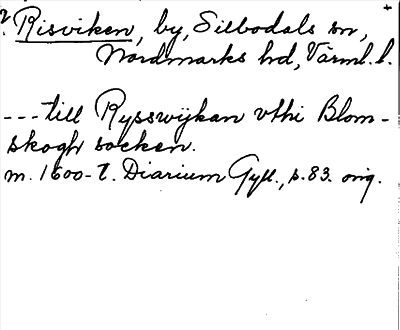 ? Risviken, by, Silbodals sn,
Nordmarks hd, Värml. l.
--- till Rysswijkan vthi Blom-
skogh socken.
m. 1600-t. Diarium Gyll., s. 83. orig.